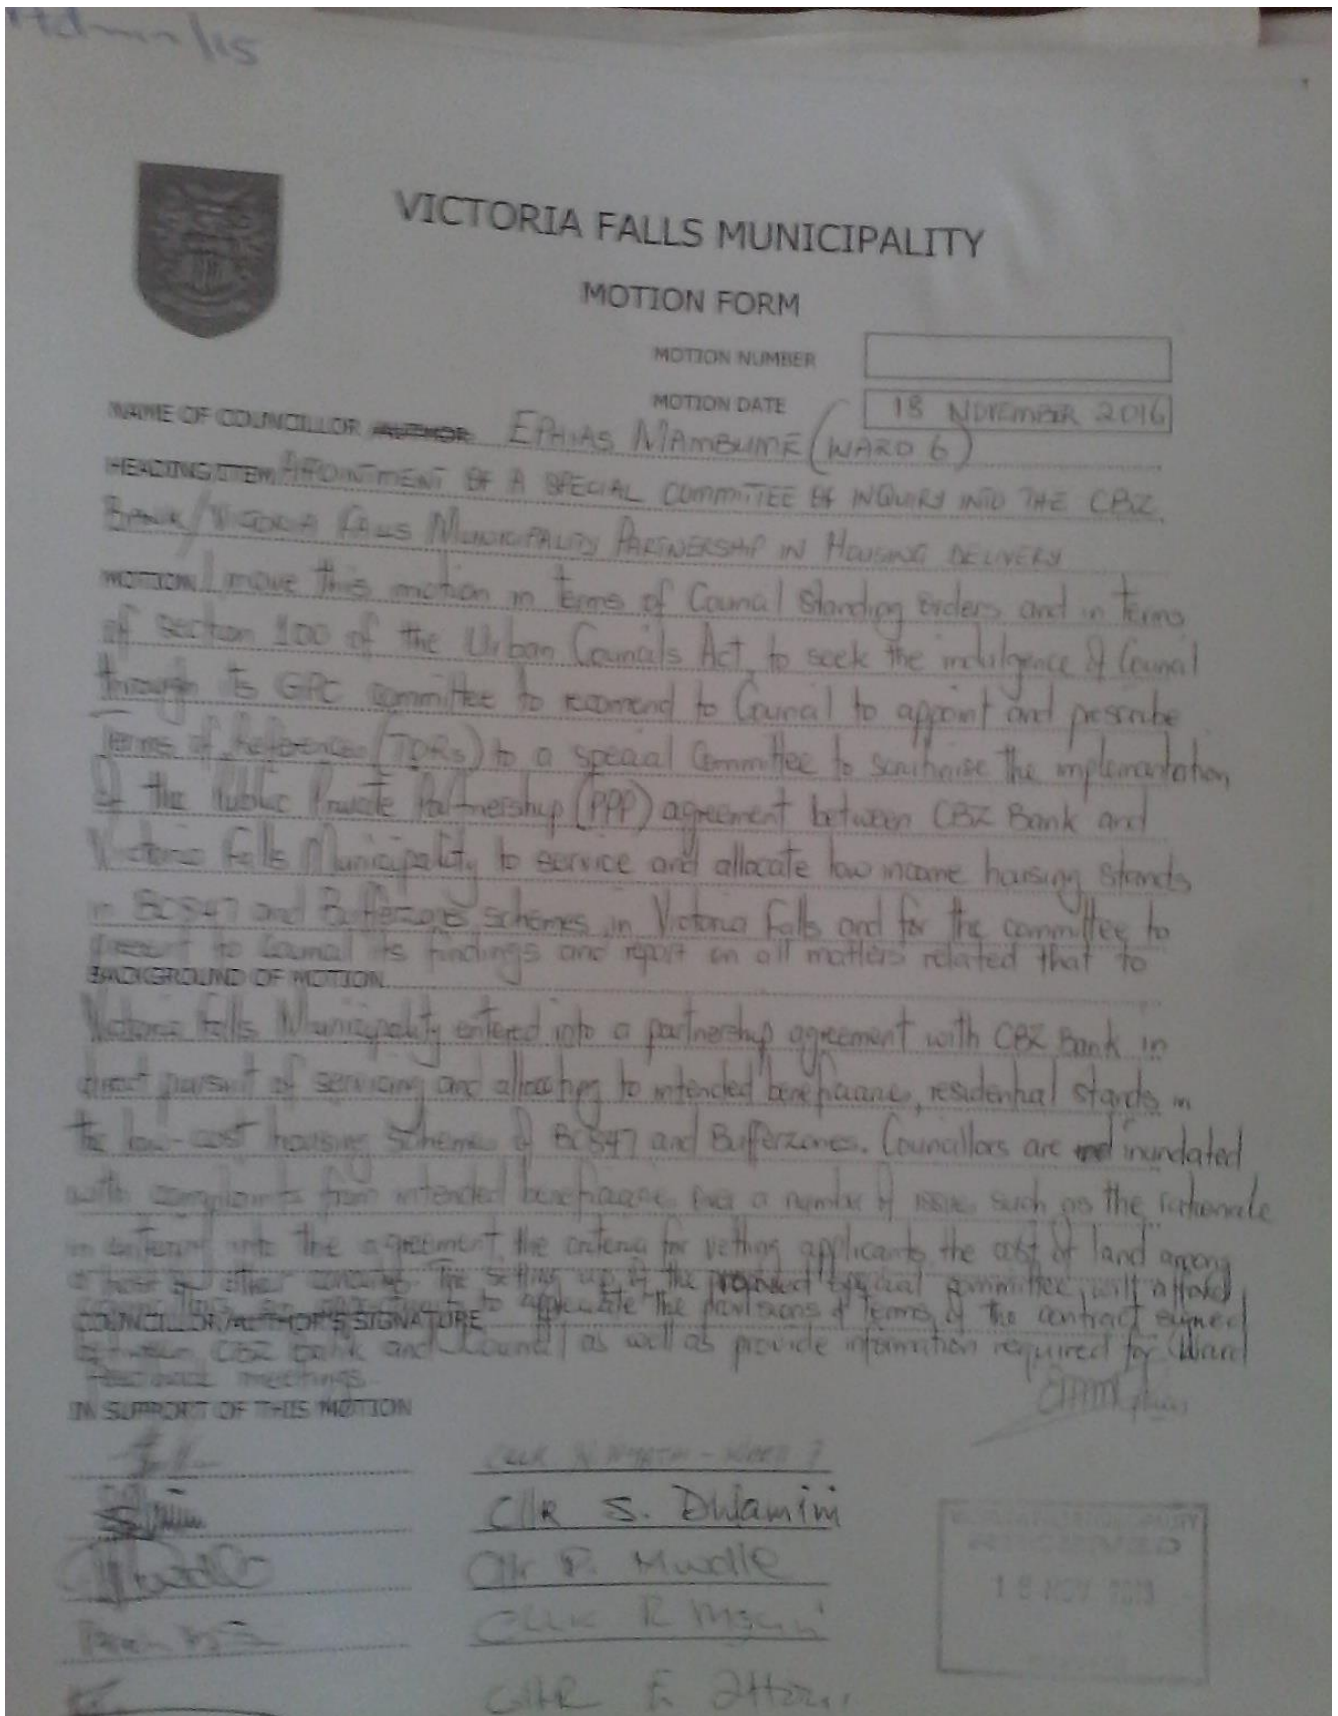 VICTORIA FALLS MUNICIPALITY
MOTION FORM
MOTION NUMBER
MOTION DATE 18 NOVEMBER 2016
NAME OF COUNCILLOR AUTHOR EPHIAS MAMBUME (WARD 6)
HEADING/ITEM APPOINTMENT OF A SPECIAL COMMITTEE OF INQUIRY INTO THE CBZ
BANK/VICTORIA FALLS MUNICIPALITY PARTNERSHIP IN HOUSING DELIVERY
MOTION I move this motion in terms of Council Standing orders and in terms
of section 100 of the Urban Councils Act, to seek the indulgence of Council
through its GPC committee to recomend to Council to appoint and prescribe
Terms of References (TORs) to a special Committee to scrutinise the implementation
of the Public Private Partnership (PPP) agreement between CBZ Bank and
Victoria Falls Municipality to service and allocate low income housing stands
in BC547 and Bufferzones schemes in Victoria Falls and for the committee to
present to Council its findings and report on all matters related that to
BACKGROUND OF MOTION
Victoria Falls Municipality entered into a partnership agreement with CBZ Bank in
direct pursuit of servicing and allocating to intended beneficiaries, residential stands in
the low-cost housing schemes of BC547 and Bufferzones. Councillors are inundated
with complaints from intended beneficiaries over a number of issues such as the rationale
in entering into the agreement, the criteria for vetting applicants the cost of land among
a host of other concerns. The setting up of the special committee will afford
to appreciate the provisions of terms of the contract signed
COUNCILLOR/AUTHOR'S SIGNATURE
between CBZ bank and Council as well as provide information required for Ward
feedback meetings.
IN SUPPORT OF THIS MOTION
Cllr S. Dhlamini
Cllr P. Mwale
Cllr R
Cllr F.
RECEIVED
18 NOV